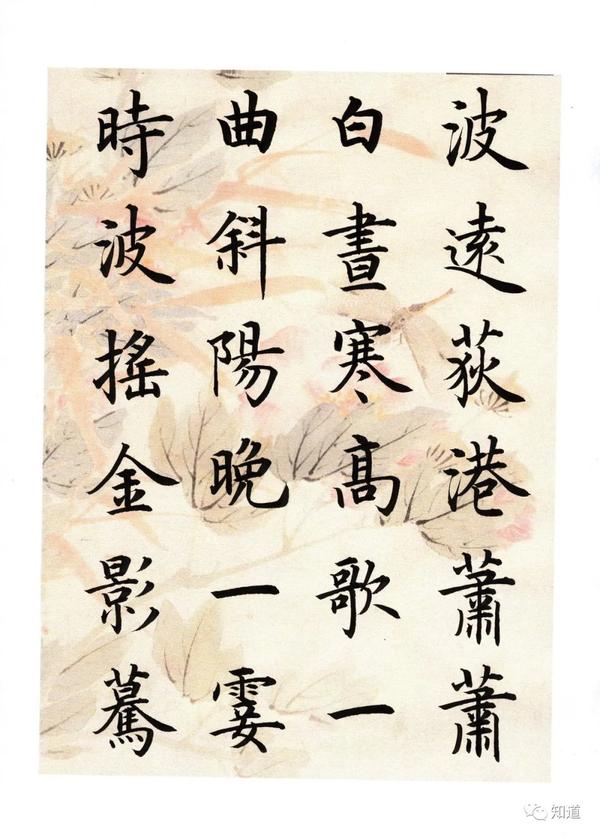 波遠荻港蕭蕭
白晝寒髙歌一
曲斜陽晚一霎
時波搖金影驀
知道